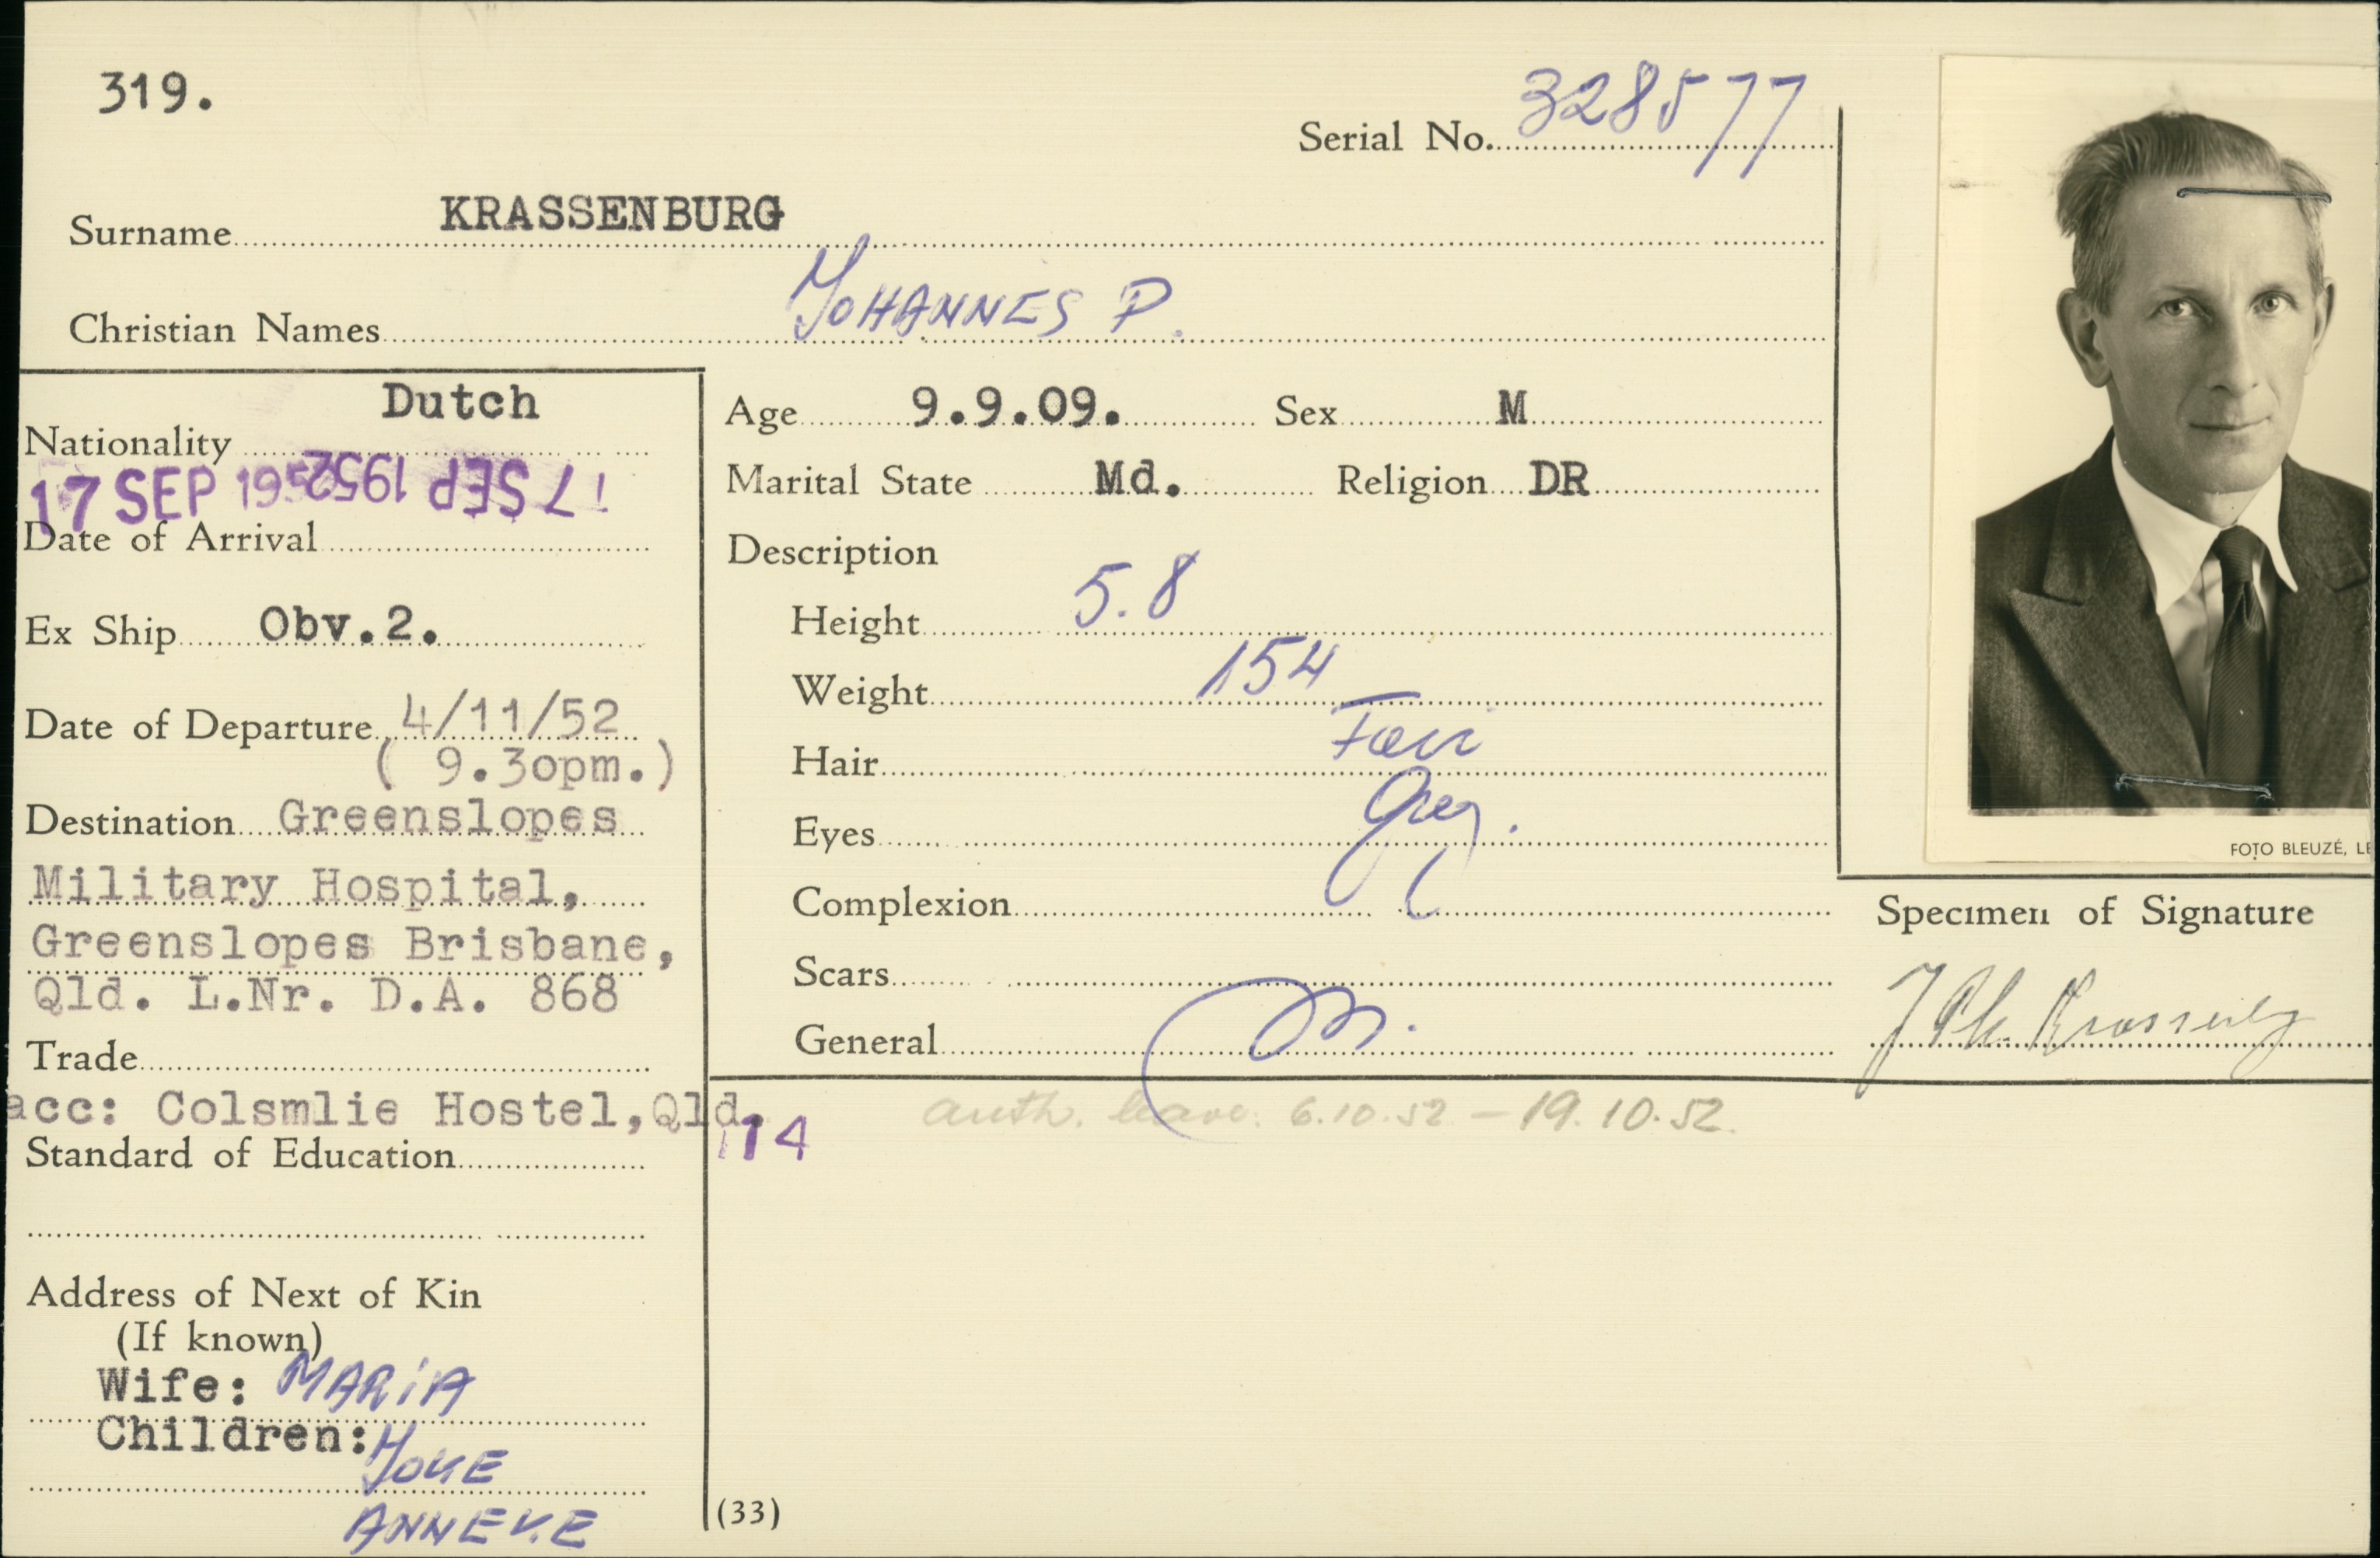 319.
Serial No. 328577
Surname KRASSENBURG
Christian Names JOHANNES P.
Nationality Dutch
17 SEP 1952 17 SEP 1952
Date of Arrival
Ex Ship Obv.2.
Date of Departure 4/11/52
( 9.30pm.)
Destination Greenslopes
Military Hospital,
Greenslopes Brisbane,
Qld. L.Nr. D.A. 868
Trade
acc: Colsmlie Hostel,Qld.
Standard of Education
Address of Next of Kin
(If known)
Wife: MARIA
Children: JOKE
ANNEKE
Age 9.9.09. Sex M
Marital State Md. Religion DR
Description
Height 5.8
Weight 154
Hair Fair
Eyes Grey.
Complexion
Scars
General
114
auth. leave: 6.10.52 - 19.10.52.
(33)
FOTO BLEUZÉ, LE
Specimen of Signature
J Ph. Krassenburg